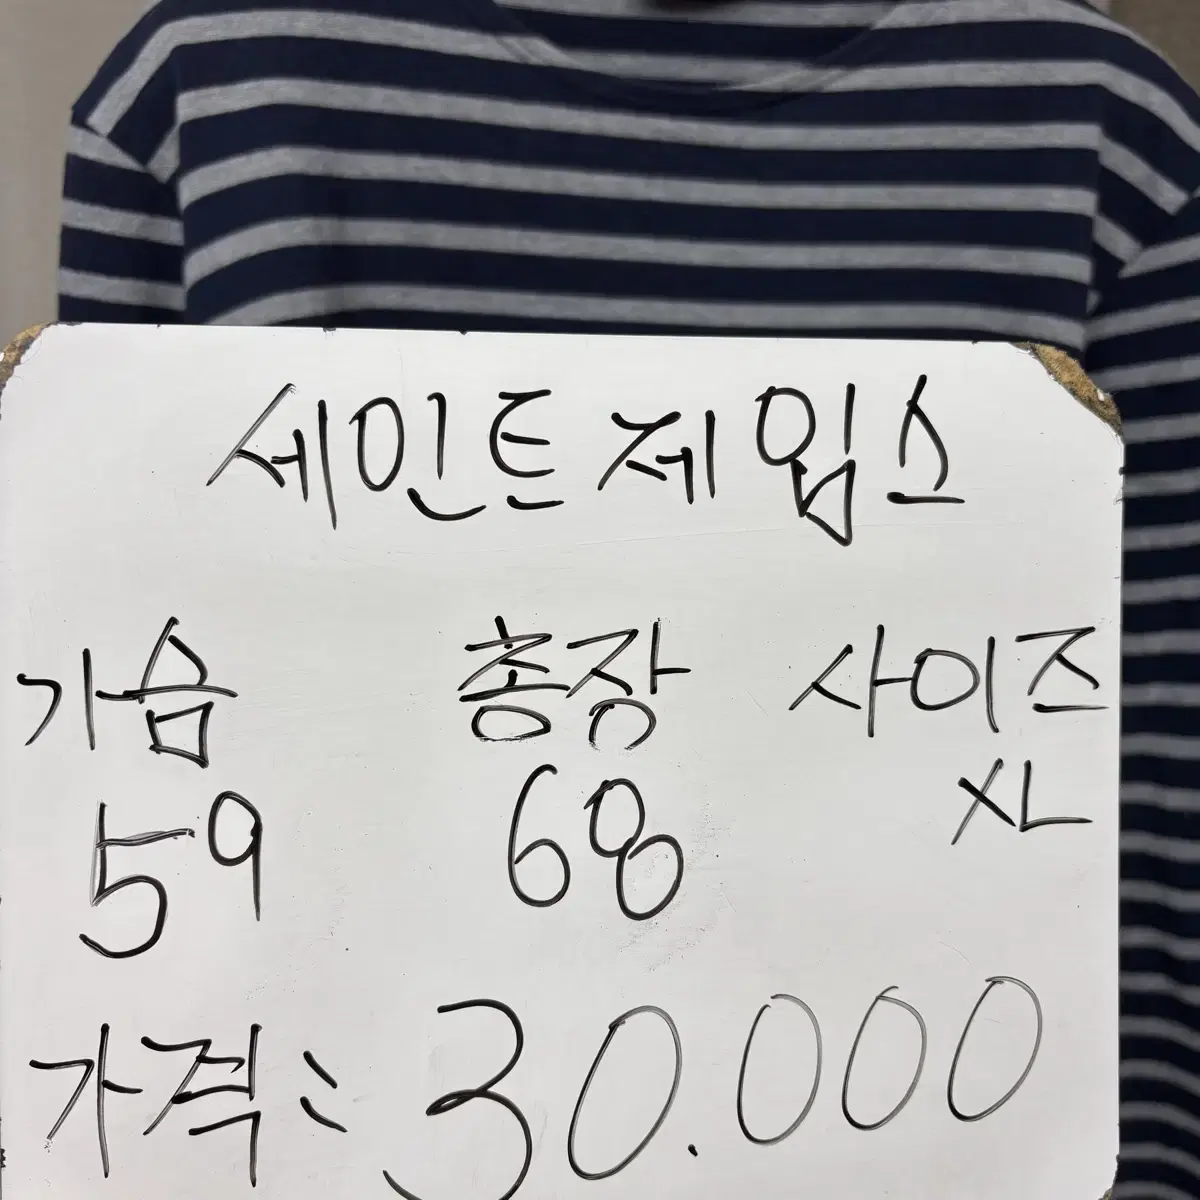 세인트제임스
가슴 총장 사이즈
59 68 XL
가격: 30.000